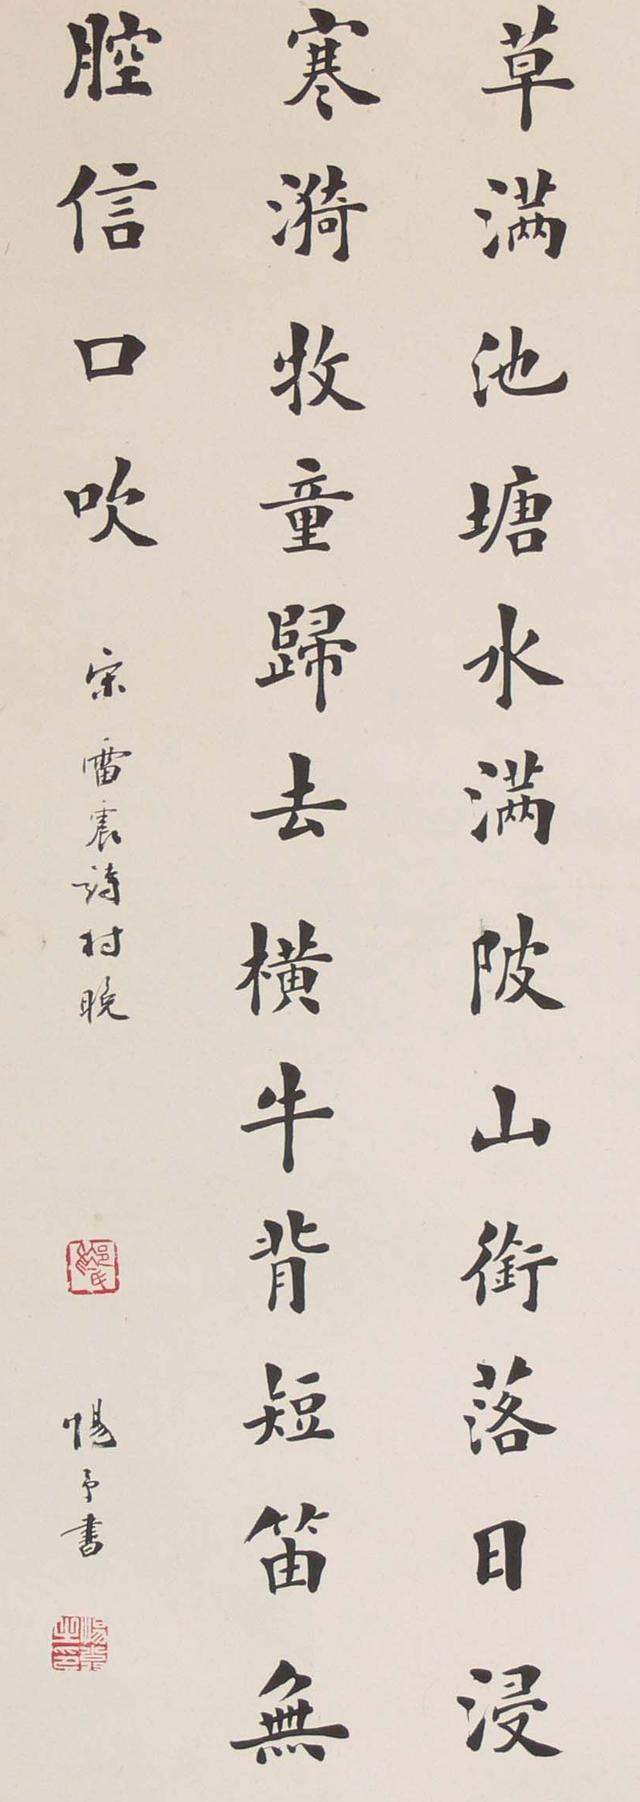 草滿池塘水滿陂山銜落日浸
寒漪牧童歸去橫牛背短笛無
腔信口吹 宋雷震詩村晚 惕予書